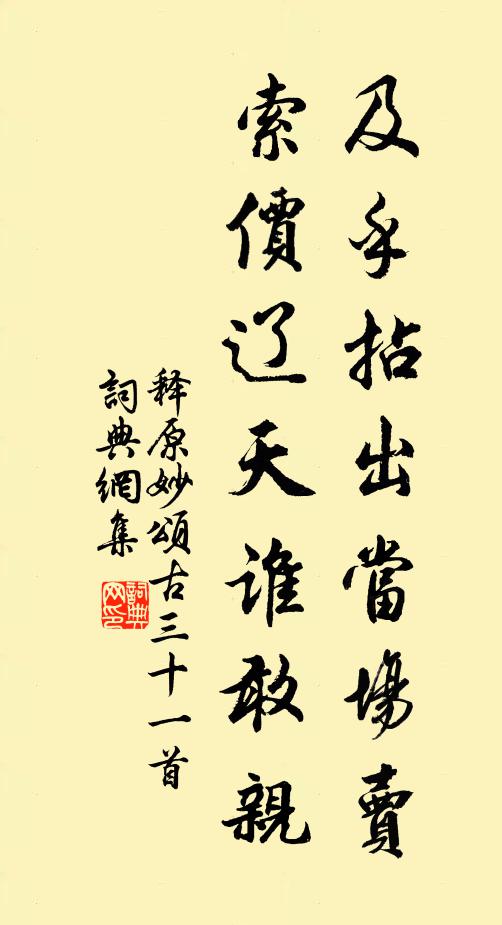 及乎拈出當場賣
索價辽天誰敢親
释原妙頌古三十一首
詞典網集
詞典網印